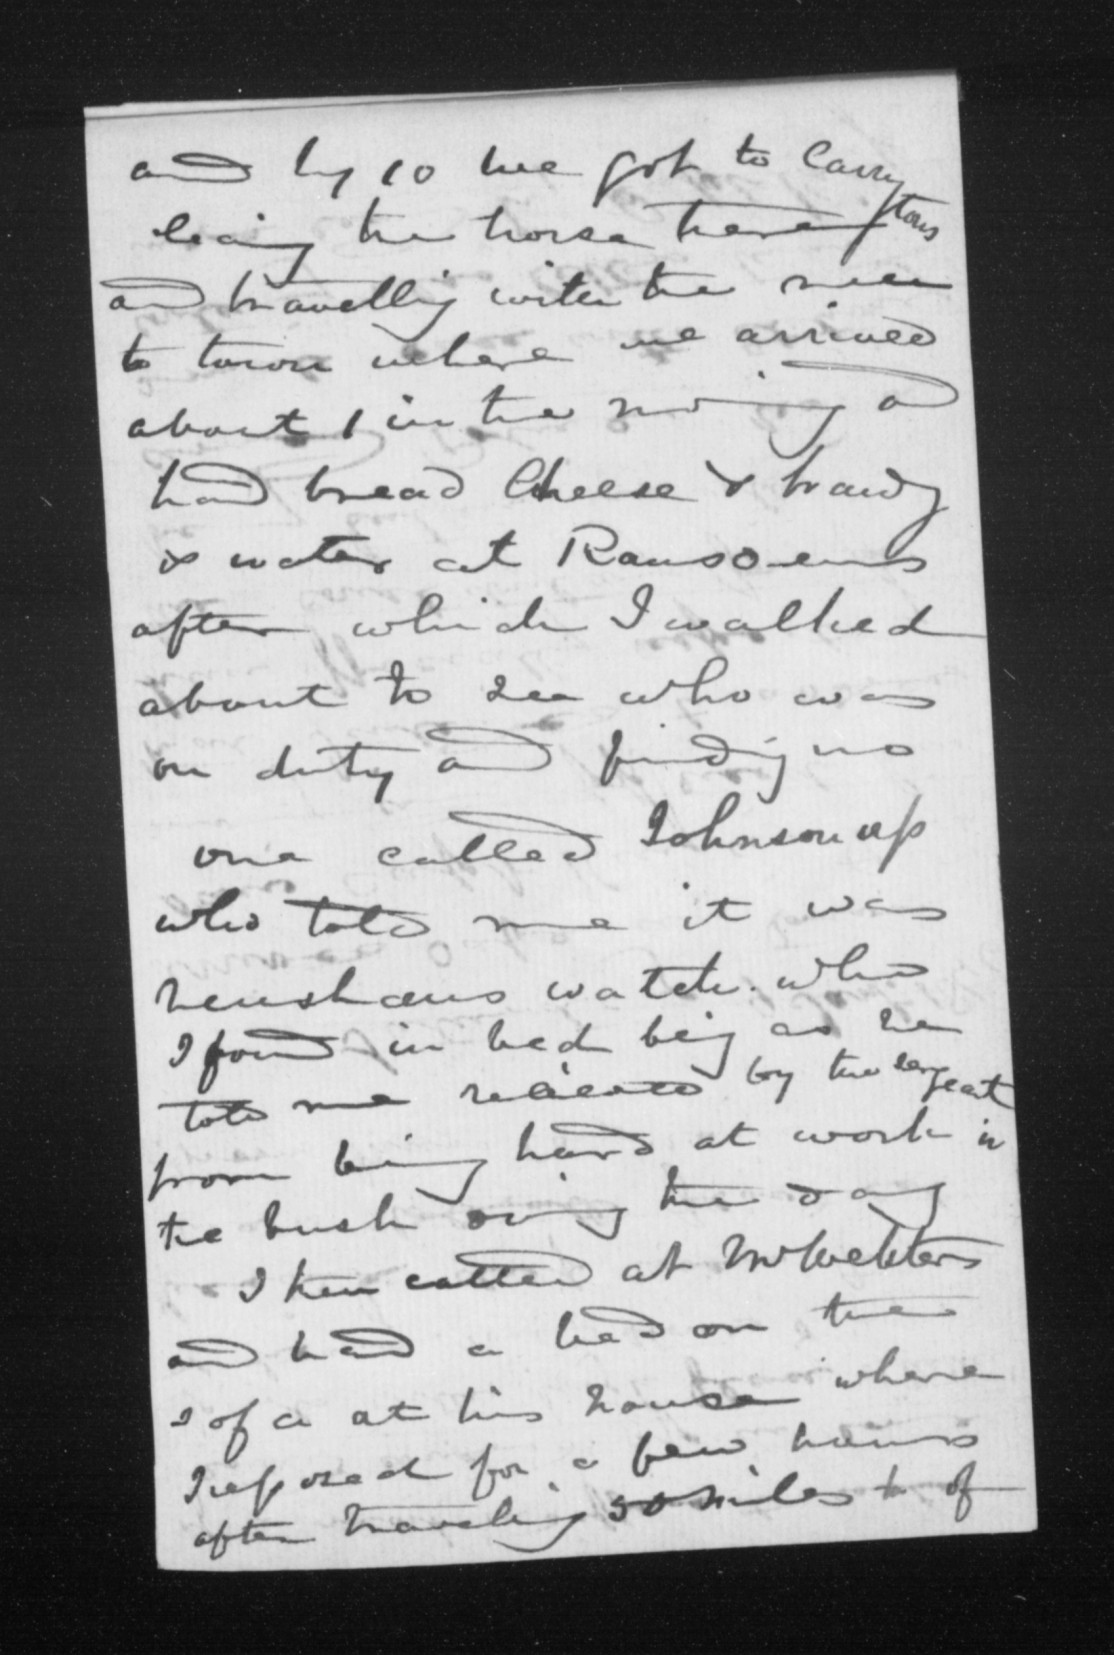 and by 10 we got to Carryngtons
leaing the horse there
and travelling with the men
to town where we arrived
about 1 in the morning and
had bread Cheese & brandy
& water at Ransoms
after which I walked
about to see who was
on duty and finding no
one called Johnson up
who told me it was
henshaws watch. who
I found in bed being as he
told me relieved by the sergeant
from being hard at work in
the bush during the day
I then called at Mr Websters
and had a bed on the
sofa at his house where
I reposed for a few hours
after traveling 50 miles + of